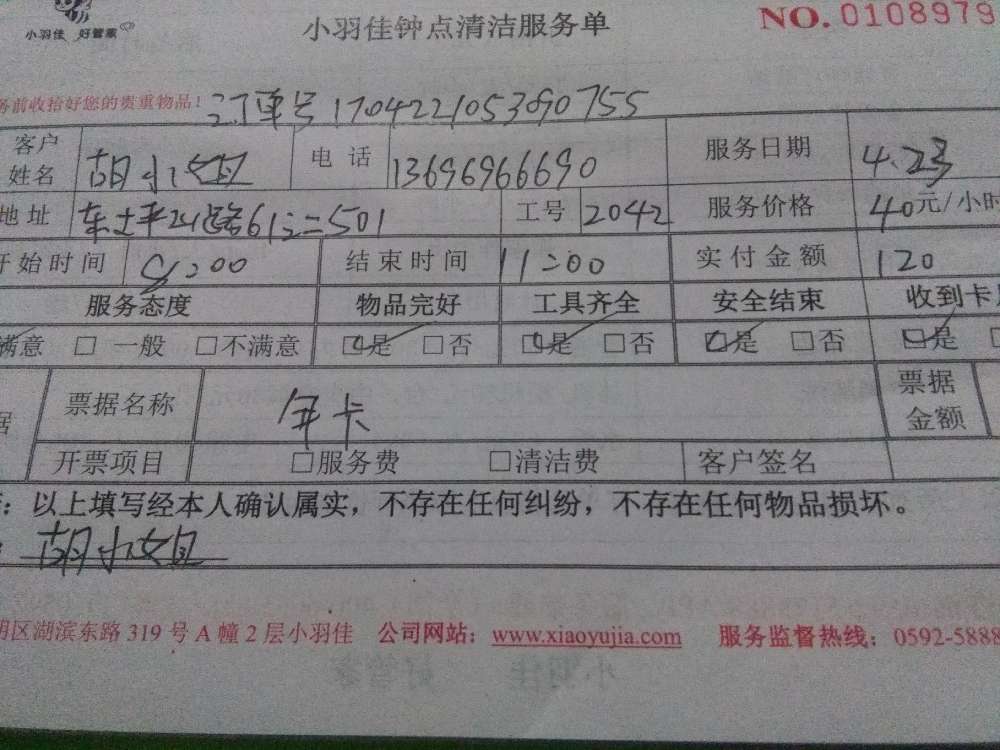 小羽佳 好管家
小羽佳钟点清洁服务单
NO. 0108979
务前收拾好您的贵重物品！
订单号 170422105390755
客户姓名 胡小姐 电话 13696966690 服务日期 4.23
地址 501 工号 2042 服务价格 40元/小时
开始时间 9:00 结束时间 11:00 实付金额 120
服务态度 物品完好 工具齐全 安全结束 收到卡
满意 □ 一般 □不满意 □是 □否 □是 □否 □是 □否 □是
据 票据名称 年卡 票据金额
开票项目 □服务费 □清洁费 客户签名
：以上填写经本人确认属实，不存在任何纠纷，不存在任何物品损坏。
：胡小姐
明区湖滨东路 319 号 A 幢 2 层小羽佳 公司网站：www.xiaoyujia.com 服务监督热线：0592-5888